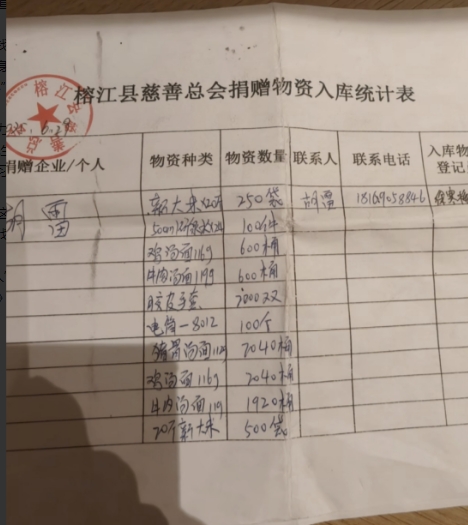 榕江县慈善总会捐赠物资入库统计表
捐赠企业/个人 物资种类 物资数量 联系人 联系电话 入库物
登记
胡雷 新大米 250袋 胡雷 18169058846
100件
鸡汤面116g 600桶
牛肉汤面119g 600桶
胶皮手套 双
电筒-8012 100个
汤面 2040桶
鸡汤面116g 2040桶
牛肉汤面119 1920桶
20斤新大米 500袋